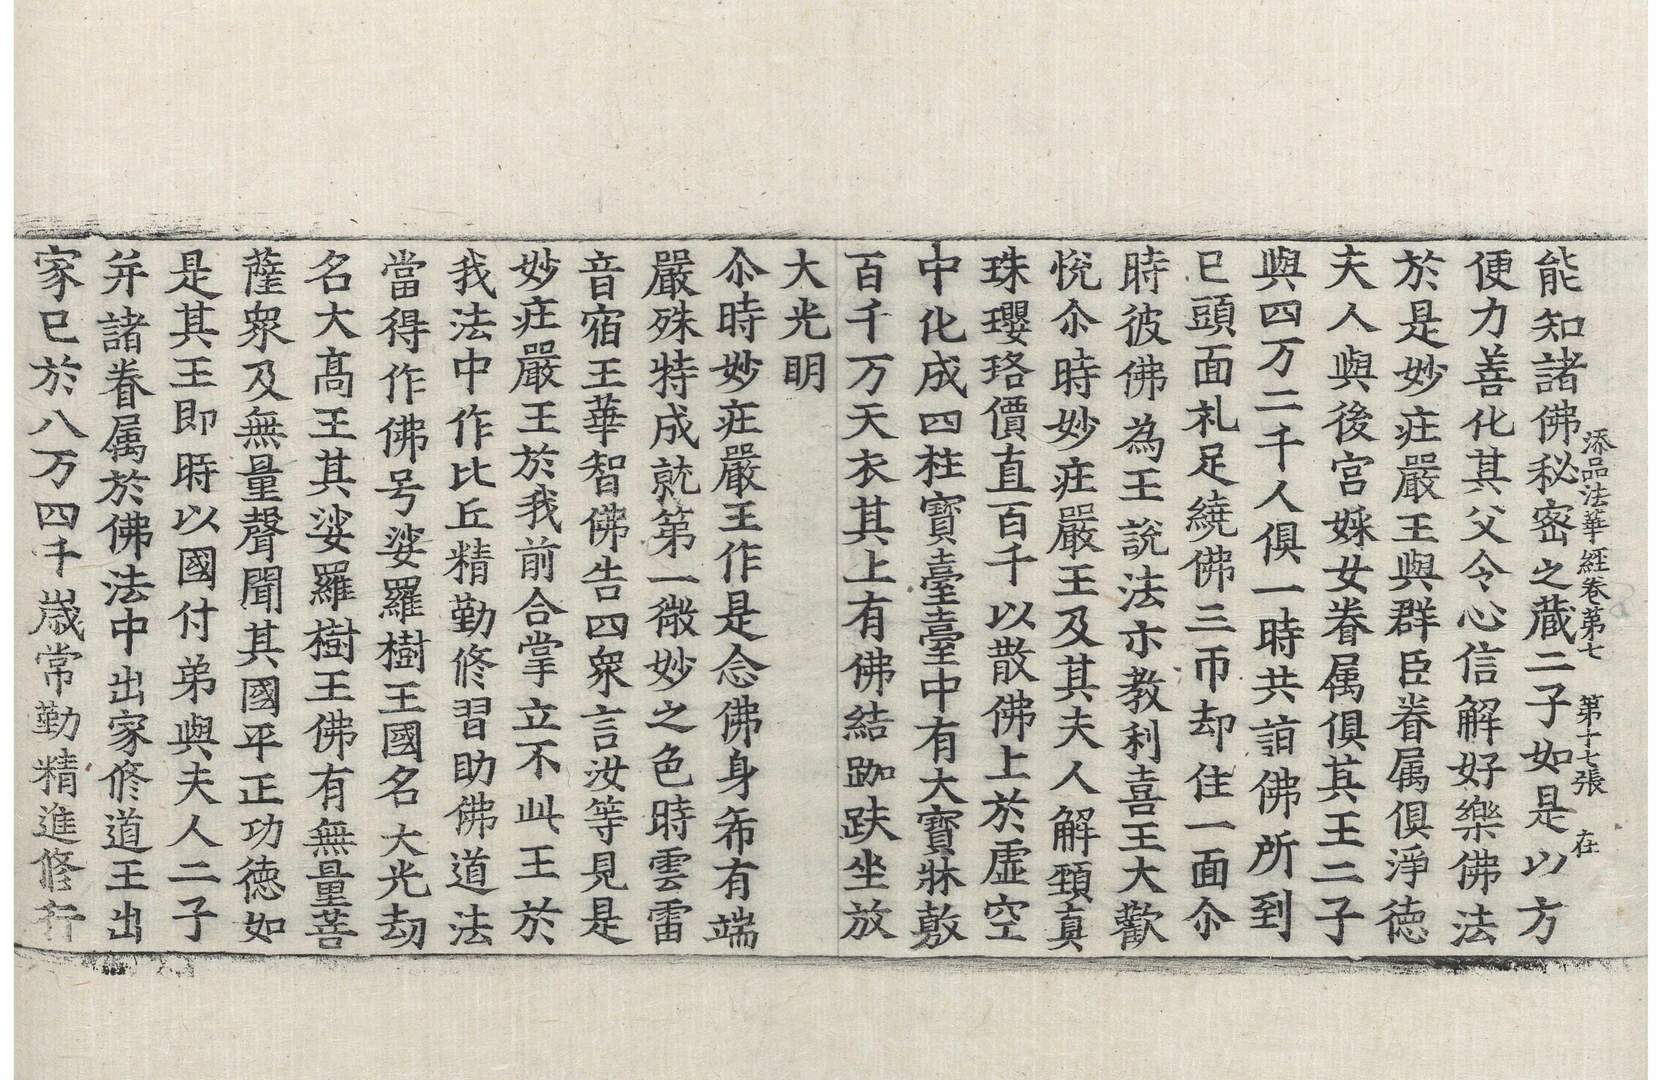 添品法華経卷第七 第十七張 在
能知諸佛秘密之蔵二子如是以方
便力善化其父令心信解好樂佛法
於是妙庄嚴王與群臣眷属俱淨徳
夫人與後宮婇女眷属俱其王二子
與四万二千人俱一時共詣佛所到
已頭面礼足繞佛三帀却住一面尒
時彼佛為王說法示教利喜王大歡
悅尒時妙庄嚴王及其夫人解頚真
珠瓔珞價直百千以散佛上於虛空
中化成四柱寶臺臺中有大寶牀敷
百千万天衣其上有佛結跏趺坐放
大光明
尒時妙庄嚴王作是念佛身希有端
嚴殊特成就第一微妙之色時雲雷
音宿王華智佛告四衆言汝等見是
妙庄嚴王於我前合掌立不此王於
我法中作比丘精勤修習助佛道法
當得作佛号娑羅樹王國名大光劫
名大髙王其娑羅樹王佛有無量菩
薩衆及無量聲聞其國平正功徳如
是其王即時以國付弟與夫人二子
并諸眷属於佛法中出家修道王出
家已於八万四千歳常勤精進修行